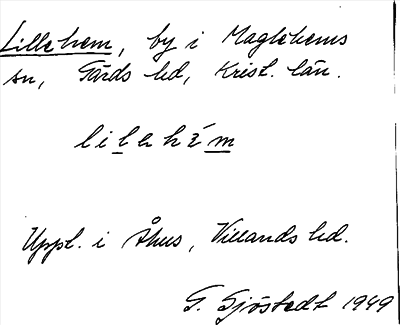 Lillehem, by i Maglehems
sn, Gärds hd, Krist. län.
lilahém
Uppt. i Åhus, Villands hd.
G. Sjöstedt 1949